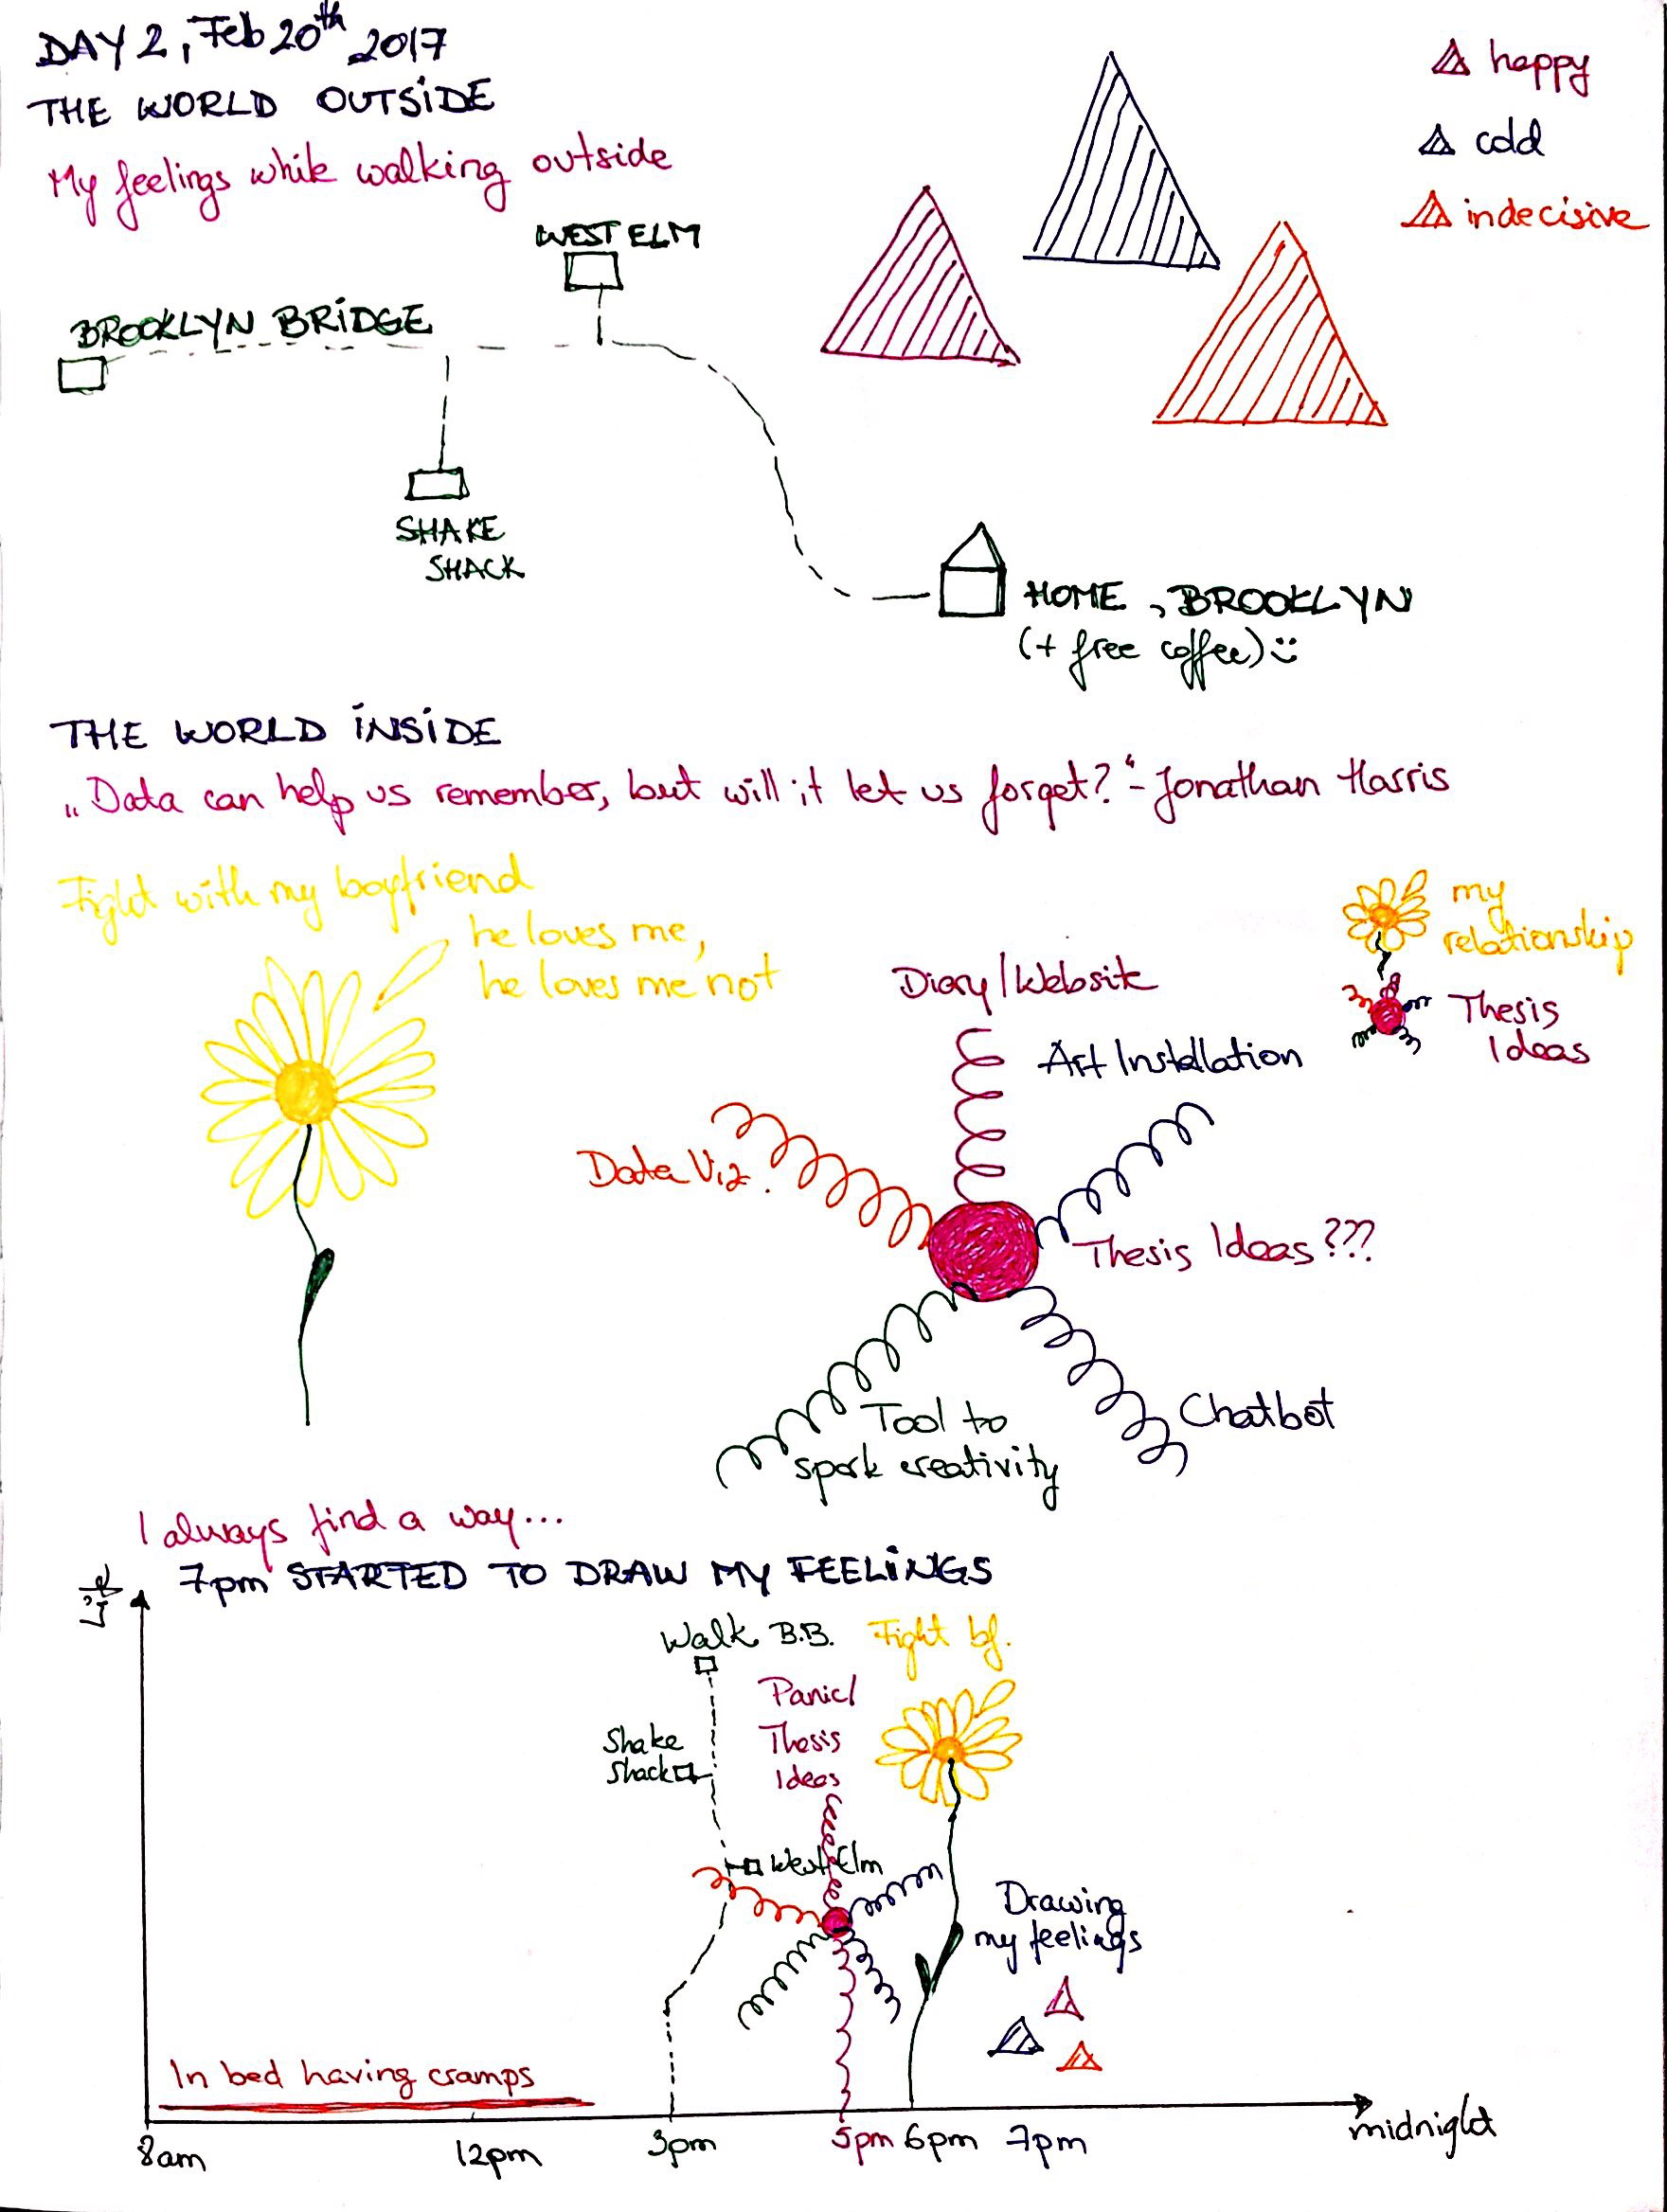 DAY 2, Feb 20th 2017
THE WORLD OUTSIDE
My feelings while walking outside
happy
cold
indecisive
WEST ELM
BROOKLYN BRIDGE
SHAKE
SHACK
HOME, BROOKLYN
(+ free coffee) :)
THE WORLD INSIDE
„Data can help us remember, but will it let us forget?“ - Jonathan Harris
Fight with my boyfriend
he loves me,
he loves me not
my
relationship
Thesis
Ideas
Diary/Website
Art Installation
Data Viz.
Thesis Ideas???
Tool to
spark creativity
Chatbot
I always find a way...
7pm STARTED TO DRAW MY FEELINGS
Walk B.B.
Fight bf.
Panic/
Thesis
Ideas
Shake
Shack
West Elm
Drawing
my feelings
In bed having cramps
8am
12pm
3pm
5pm
6pm
7pm
midnight